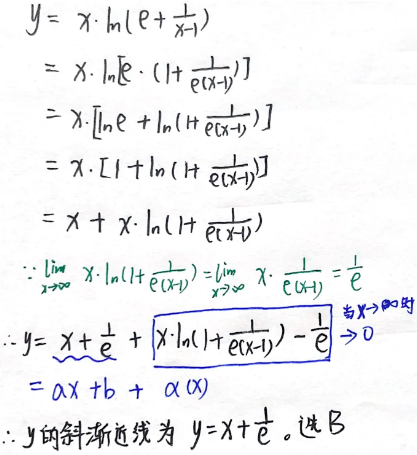 y = x·ln(e + 1/(x-1))
= x·ln[e·(1+ 1/(e(x-1)))]
= x·[lne + ln(1+ 1/(e(x-1)))]
= x·[1+ln(1+ 1/(e(x-1)))]
= x + x·ln(1+ 1/(e(x-1)))
∵ lim x→∞ x·ln(1+ 1/(e(x-1))) = lim x→∞ x· 1/(e(x-1)) = 1/e
∴ y = x + 1/e + x·ln(1+ 1/(e(x-1))) - 1/e 当x→∞时 →0
= ax + b + α(x)
∴ y的斜渐近线为 y=x+1/e。选B